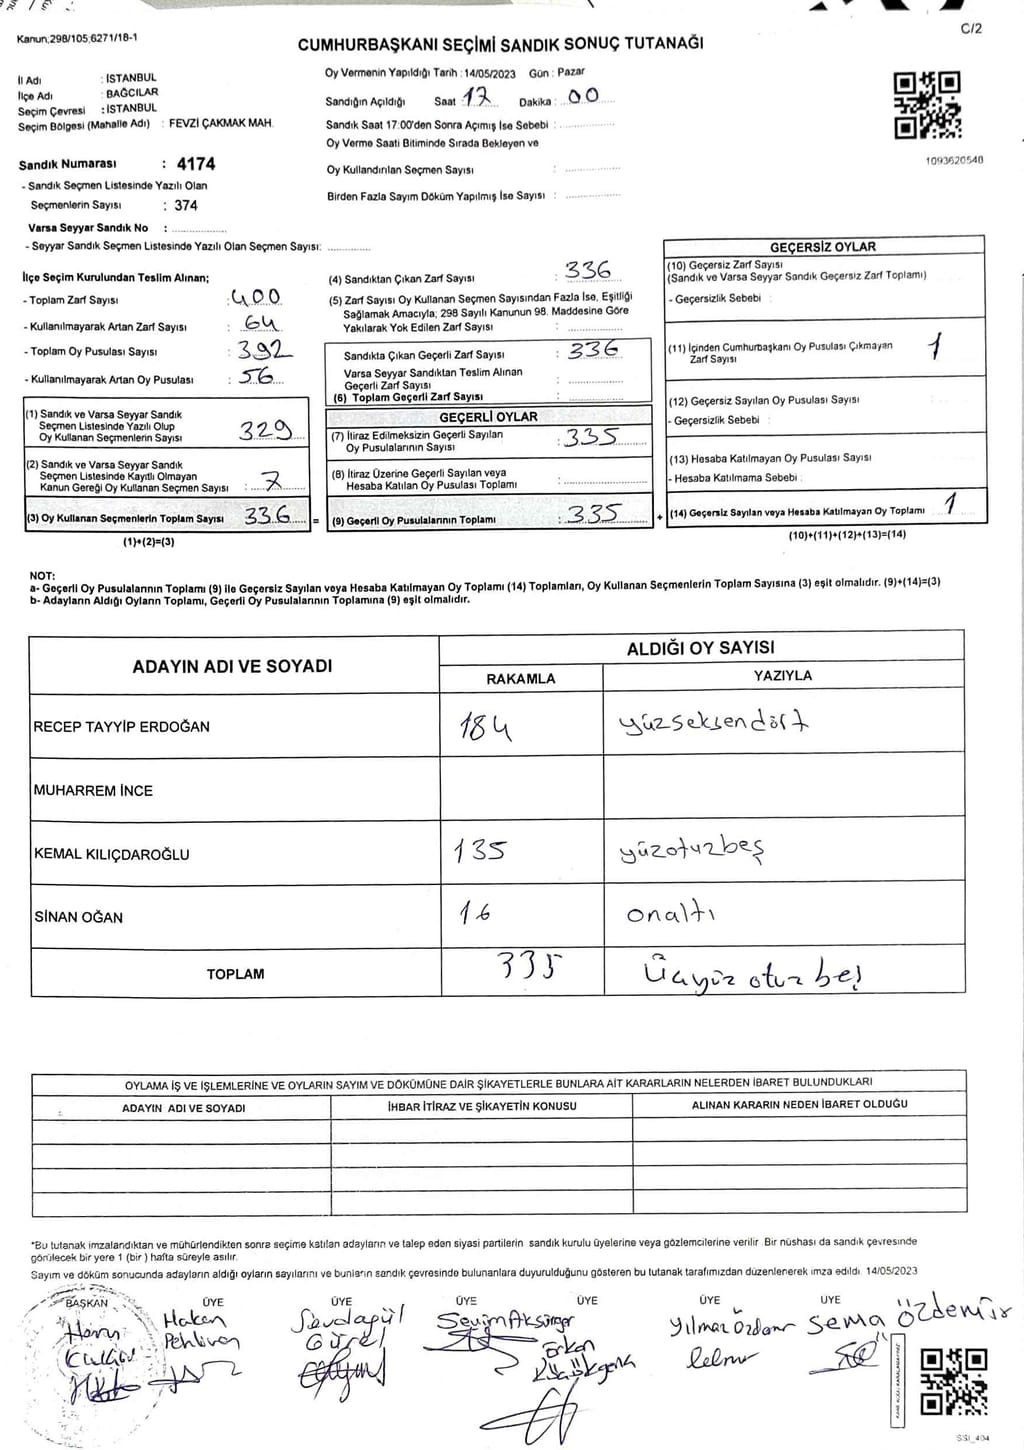 Kanun;298/105;6271/18-1
C/2
CUMHURBAŞKANI SEÇİMİ SANDIK SONUÇ TUTANAĞI
İl Adı : İSTANBUL
İlçe Adı : BAĞCILAR
Seçim Çevresi : İSTANBUL
Seçim Bölgesi (Mahalle Adı) : FEVZİ ÇAKMAK MAH.
Sandık Numarası : 4174
- Sandık Seçmen Listesinde Yazılı Olan
Seçmenlerin Sayısı : 374
Varsa Seyyar Sandık No :
- Seyyar Sandık Seçmen Listesinde Yazılı Olan Seçmen Sayısı:
Oy Vermenin Yapıldığı Tarih : 14/05/2023 Gün : Pazar
Sandığın Açıldığı Saat : 17 Dakika : 00
Sandık Saat 17:00'den Sonra Açımış İse Sebebi :
Oy Verme Saati Bitiminde Sırada Bekleyen ve
Oy Kullandırılan Seçmen Sayısı :
Birden Fazla Sayım Döküm Yapılmış İse Sayısı :
1093620548
İlçe Seçim Kurulundan Teslim Alınan;
- Toplam Zarf Sayısı : 400
- Kullanılmayarak Artan Zarf Sayısı : 64
- Toplam Oy Pusulası Sayısı : 392
- Kullanılmayarak Artan Oy Pusulası : 56
(1) Sandık ve Varsa Seyyar Sandık
Seçmen Listesinde Yazılı Olup
Oy Kullanan Seçmenlerin Sayısı 329
(2) Sandık ve Varsa Seyyar Sandık
Seçmen Listesinde Kayıtlı Olmayan
Kanun Gereği Oy Kullanan Seçmen Sayısı : 7
(3) Oy Kullanan Seçmenlerin Toplam Sayısı 336 =
(1)+(2)=(3)
(4) Sandıktan Çıkan Zarf Sayısı : 336
(5) Zarf Sayısı Oy Kullanan Seçmen Sayısından Fazla İse, Eşitliği
Sağlamak Amacıyla; 298 Sayılı Kanunun 98. Maddesine Göre
Yakılarak Yok Edilen Zarf Sayısı :
Sandıkta Çıkan Geçerli Zarf Sayısı : 336
Varsa Seyyar Sandıktan Teslim Alınan
Geçerli Zarf Sayısı :
(6) Toplam Geçerli Zarf Sayısı :
GEÇERLİ OYLAR
(7) İtiraz Edilmeksizin Geçerli Sayılan
Oy Pusulalarının Sayısı : 335
(8) İtiraz Üzerine Geçerli Sayılan veya
Hesaba Katılan Oy Pusulası Toplamı :
(9) Geçerli Oy Pusulalarının Toplamı : 335 +
GEÇERSİZ OYLAR
(10) Geçersiz Zarf Sayısı
(Sandık ve Varsa Seyyar Sandık Geçersiz Zarf Toplamı)
- Geçersizlik Sebebi :
(11) İçinden Cumhurbaşkanı Oy Pusulası Çıkmayan
Zarf Sayısı 1
(12) Geçersiz Sayılan Oy Pusulası Sayısı
- Geçersizlik Sebebi :
(13) Hesaba Katılmayan Oy Pusulası Sayısı
- Hesaba Katılmama Sebebi :
(14) Geçersiz Sayılan veya Hesaba Katılmayan Oy Toplamı 1
(10)+(11)+(12)+(13)=(14)
NOT:
a- Geçerli Oy Pusulalarının Toplamı (9) ile Geçersiz Sayılan veya Hesaba Katılmayan Oy Toplamı (14) Toplamları, Oy Kullanan Seçmenlerin Toplam Sayısına (3) eşit olmalıdır. (9)+(14)=(3)
b- Adayların Aldığı Oyların Toplamı, Geçerli Oy Pusulalarının Toplamına (9) eşit olmalıdır.
ADAYIN ADI VE SOYADI
ALDIĞI OY SAYISI
RAKAMLA YAZIYLA
RECEP TAYYİP ERDOĞAN 184 yüzseksendört
MUHARREM İNCE
KEMAL KILIÇDAROĞLU 135 yüzotuzbeş
SİNAN OĞAN 16 onaltı
TOPLAM 335 Üçyüz otuz beş
OYLAMA İŞ VE İŞLEMLERİNE VE OYLARIN SAYIM VE DÖKÜMÜNE DAİR ŞİKAYETLERLE BUNLARA AİT KARARLARIN NELERDEN İBARET BULUNDUKLARI
ADAYIN ADI VE SOYADI İHBAR İTİRAZ VE ŞİKAYETİN KONUSU ALINAN KARARIN NEDEN İBARET OLDUĞU
*Bu tutanak imzalandıktan ve mühürlendikten sonra seçime katılan adayların ve talep eden siyasi partilerin sandık kurulu üyelerine veya gözlemcilerine verilir. Bir nüshası da sandık çevresinde
görülecek bir yere 1 (bir) hafta süreyle asılır.
Sayım ve döküm sonucunda adayların aldığı oyların sayılarını ve bunların sandık çevresinde bulunanlara duyurulduğunu gösteren bu tutanak tarafımızdan düzenlenerek imza edildi. 14/05/2023
BAŞKAN ÜYE ÜYE ÜYE ÜYE ÜYE ÜYE
Hakan
Pehlivan
Sevdagül
Gürel
Sevim Aksünger
Erkan
Yılmaz Özdemir
Sema Özdemir
SSI_404